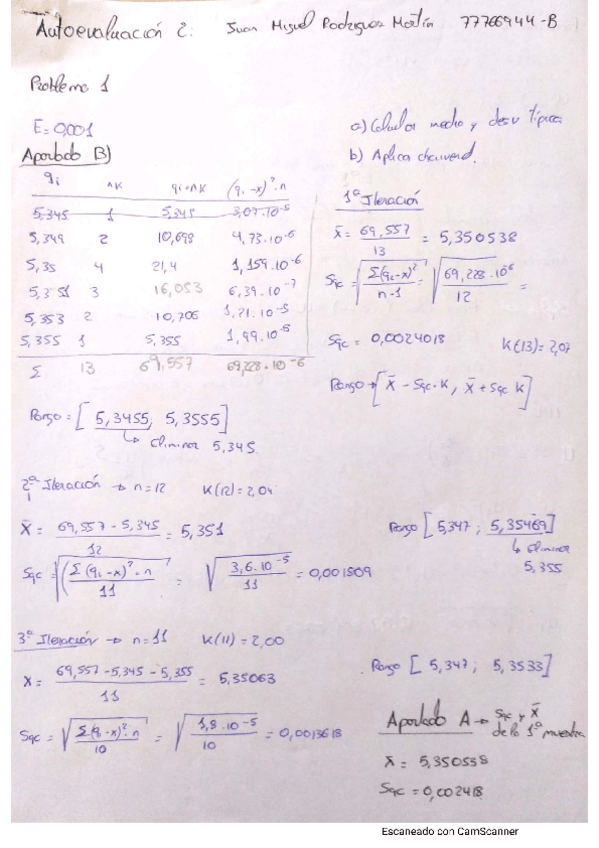 Autoevaluación 2: Juan Miguel Rodríguez Martín 77766944-B
Problema 1
E = 0,001
a) Calcular media y desv típica
Apartado B)
b) Aplica chauvenet.
qi nk qi·nk (qi-x)²·n
5,345 1 5,345 3,07·10⁻⁵
5,349 2 10,698 4,73·10⁻⁶
5,35 4 21,4 1,159·10⁻⁶
5,351 3 16,053 6,39·10⁻⁷
5,353 2 10,706 1,21·10⁻⁵
5,355 1 5,355 1,99·10⁻⁵
Σ 13 69,557 69,228·10⁻⁶
1ª Iteración
x̄ = 69,557 / 13 = 5,350538
Sqc = √(Σ(qi-x)² / n-1) = √(69,228·10⁻⁶ / 12) =
Sqc = 0,0024018 K(13)=2,07
Rango → [x̄ - Sqc·K, x̄ + Sqc K]
Rango = [5,3455; 5,3555]
↳ Eliminar 5,345
2ª Iteración → n=12 K(12)=2,04
x̄ = 69,557 - 5,345 / 12 = 5,351
Rango [5,347 ; 5,35469]
↳ eliminar
5,355
Sqc = √(Σ(qi-x)²·n / 11) = √(3,6·10⁻⁵ / 11) = 0,001809
3ª Iteración → n=11 K(11)=2,00
x = 69,557 - 5,345 - 5,355 / 11 = 5,35063
Rango [5,347 ; 5,3533]
Sqc = √(Σ(qi-x)²·n / 10) = √(1,8·10⁻⁵ / 10) = 0,0013618
Apartado A → Sqc y x̄
de la 1ª muestra
x̄ = 5,350538
Sqc = 0,002418
Escaneado con CamScanner